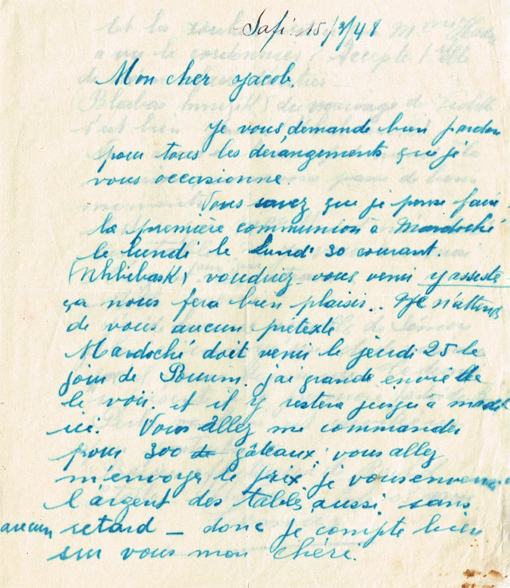 Safi 15/3/48
Mon cher Jacob,
Je vous demande bien pardon
pour tous les dérangements que je
vous occasionne.
Vous savez que je pense faire
la première communion à Mardoché
le lundi le Lundi 30 courant
voudriez-vous venir y assister
ça nous fera bien plaisir.. Je n'attends
de vous aucun prétexte
Mardoché doit venir le jeudi 25 le
jour de Pourim. j'ai grande envie
le voir. et il y restera jusqu'à
ici. Vous allez me commander
pour 300 gâteaux vous allez
m'envoyer le prix je vous enverrai
l'argent des tables aussi sans
aucun retard — donc je compte bien
sur vous mon chéri.